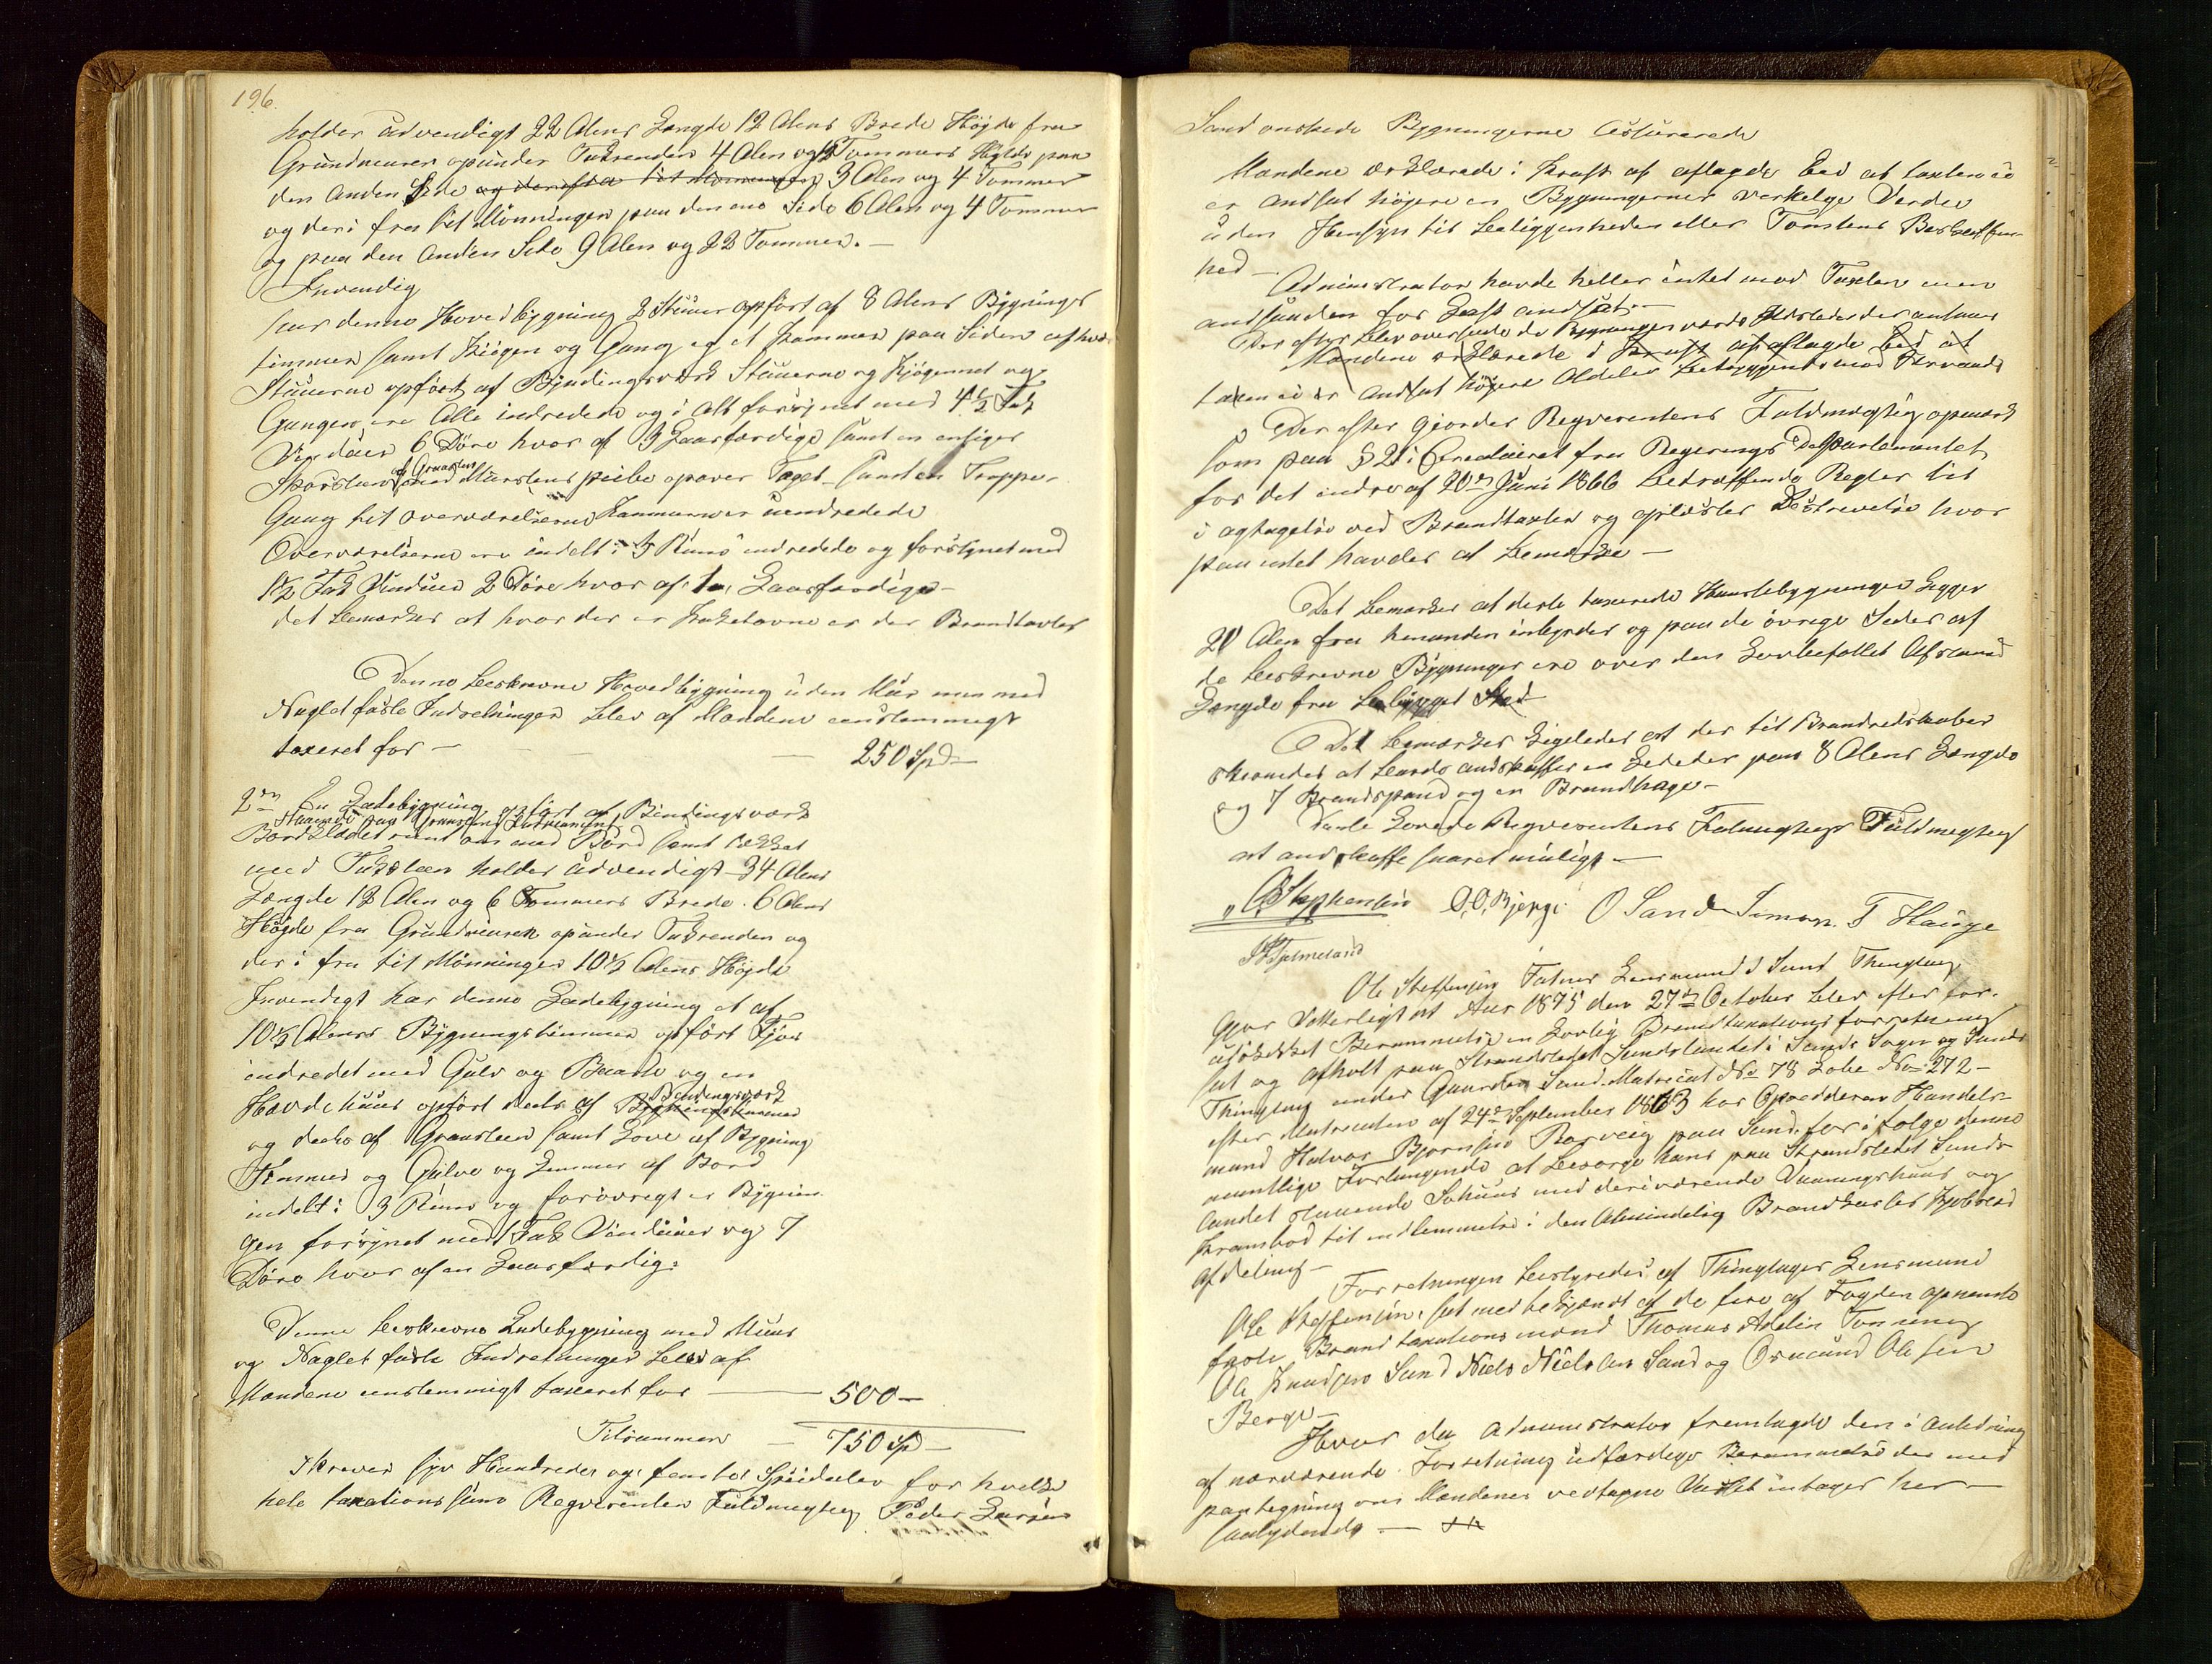 196.
holder udvendigt 22 Alens Længde 12 Alens Brede Høgde fra
Grundmuren opunder Takrenden 4 Alen og Tommers Høide paa
den anden Side og derifra til Mønningen 3 Alen og 4 Tommer
og deri fra til Mønningen paa den ene Side 6 Alen og 4 Tommer
og paa den anden Side 9 Alen og 22 Tommer. —
Invendig
har denne Hovedbygning 2 Stuer opført af 8 Alens Bygnings
tømmer samt Kiøgen og Gang og et Kammer paa Siden af
Stuerne opført af Bindingsværk Stuerne og Kjøgenet og
Gangen ere Alle indredede og i alt forsynet med 4½ Fak
Vinduer 6 Døre hvor af 3 Laasfærdige samt en
Skorsteen af Graasten med Murstens piibe opover Taget samt en Trappe
Gang til overværelserne Kammerser uindredede
Overværelserne ere indelt i 3 Rums indredede og forsynet med
1½ Fak Vinduer 2 Døre hvor af 1 Laasfærdige —
det bemærkes at hvor der er Kakelovne er der Brandtavler
Denne beskrevne Hovedbygning uden Mur men med
Naglefaste Indretninger blev af Mændene eenstemmigt
taxeret for — — 250 Spd —
2den En Ladebygning opført af Bindingsværk
Staaende paa Graastens Fundament
Bordklædet rundt om med Bord samt tækket
med Taksteen holder udvendigt 34 Alens
Længde 12 Alen og 6 Tommers Brede. 6 Alens
Høgde fra Grundmuren opunder Takrenden og
der i fra til Mønningen 10½ Alens Høide
Invendigt har denne Ladebygning et af
10½ Alens Bygningstømmer opført Fjøs
indredet med Gulv og Baase og en
Høvdehuus opført deels af Bygningstømmer Bindingsværk
og deels af Graasteen samt Love af Bygning
Tømmer og Gulve og Lemmer af Bord
indelt i 3 Rums og forøvrigt er Bygnin
gen forsynet med 1 Fak Vinduer og 7
Døre hvor af en Laasfærdig.
Denne beskrevne Ladebygning med Muur
og Naglet faste Indretninger blev af
Mændene eenstemmigt taxeret for — 500 —
Tilsammen — 750 Spd —
Skriver syv Hundrede og femti Speciedaler for hvilke
hele taxations sum Reqvirentens Fuldmegtig Peder Larsen
Sand ønskede Bygningerne Assurerede
Mændene erklærede i Kraft af aflagde Eed at taxten ei
er andsat høiere en Bygningernes verkelge Værdie
uden Hensyn til Beliggenheden eller Tomtens Beskaffen
hed —
Administrator havde heller intet mod Taxten men
andsaaden for Lavt andsat. —
Der efter blev overseede de Bygninger
Mændene erklærede i Kraft af aflagde Eed at
taxten ei er andsat høiere
Der efter gjordes Reqvirentens Fuldmægtig opmærk
som paa § 2 i Circulairet fra Regjerings Departementet
for det indre af 20de Juni 1866 betreffende Regler til
i agtagelse ved Brandtaxter og oplæstes Beskrevelse hvor
paa intet havdes at bemærke —
Det bemærkes at deele taxerede Huusbygninger Ligger
20 Alen fra henanden inbyrdes og paa de øvrige Sieder af
de beskrevne Bygninger ere over den Lovbefallet Afstand
Længde fra bebygget Sted
Det bemærkes Ligeledes at der til Brandredskaber
at burde andskaffes en Lededer paa 8 Alens Længde
og 7 Brandspand og en Brandhage —
Dette Lovede Reqvirentens Fuldmegtig
at andskaffe snarest muligt —
O. Steffensen O, O, Bjerge O Sand Simon. T Hauge
Hjelmeland
Ole Steffensen Fatnes Lensmand i Sand Thinglag
Gjør Vitterligt at Aar 1875 den 27de October blev efter for
udstædet Berammelse en Lovlig Brandtaxationsforretning
sat og afholt paa Strandstedet Sandslandet i Sands Sogn og Sands
Thinglag under Gaarden Sand Matricul No 78 Løbe No 272 —
efter Matriculen af 24de September 1863 har Opsidderen Handels
mand Halvor Bjørnsen Rørveig paa Sand, for i følge denne
mundtlige Forlangende at besørge hans paa Strandstedet Sands
landet staaende Søhuus med deri værende Vaaningshuus og
Krambod til indlemmelse i den Almindelig Brandkasses
afdeling —
Forretningen bestyredes af Thinglages Lensmand
Ole Steffensen, sat med bekjændt af de fire af Fogden opnævnte
faste Brandtaxationsmænd Thomas Tonning
Ole Knudsen Sand Niels Nielsen Sand og Osmund Olesen
Berge —
Hvor da Administrator fremlagde den i Anledning
af nærværende Forretning udfærdige Berammelse der med
paategning om Mændenes vedtagne Varsel intages her —
saalydende —